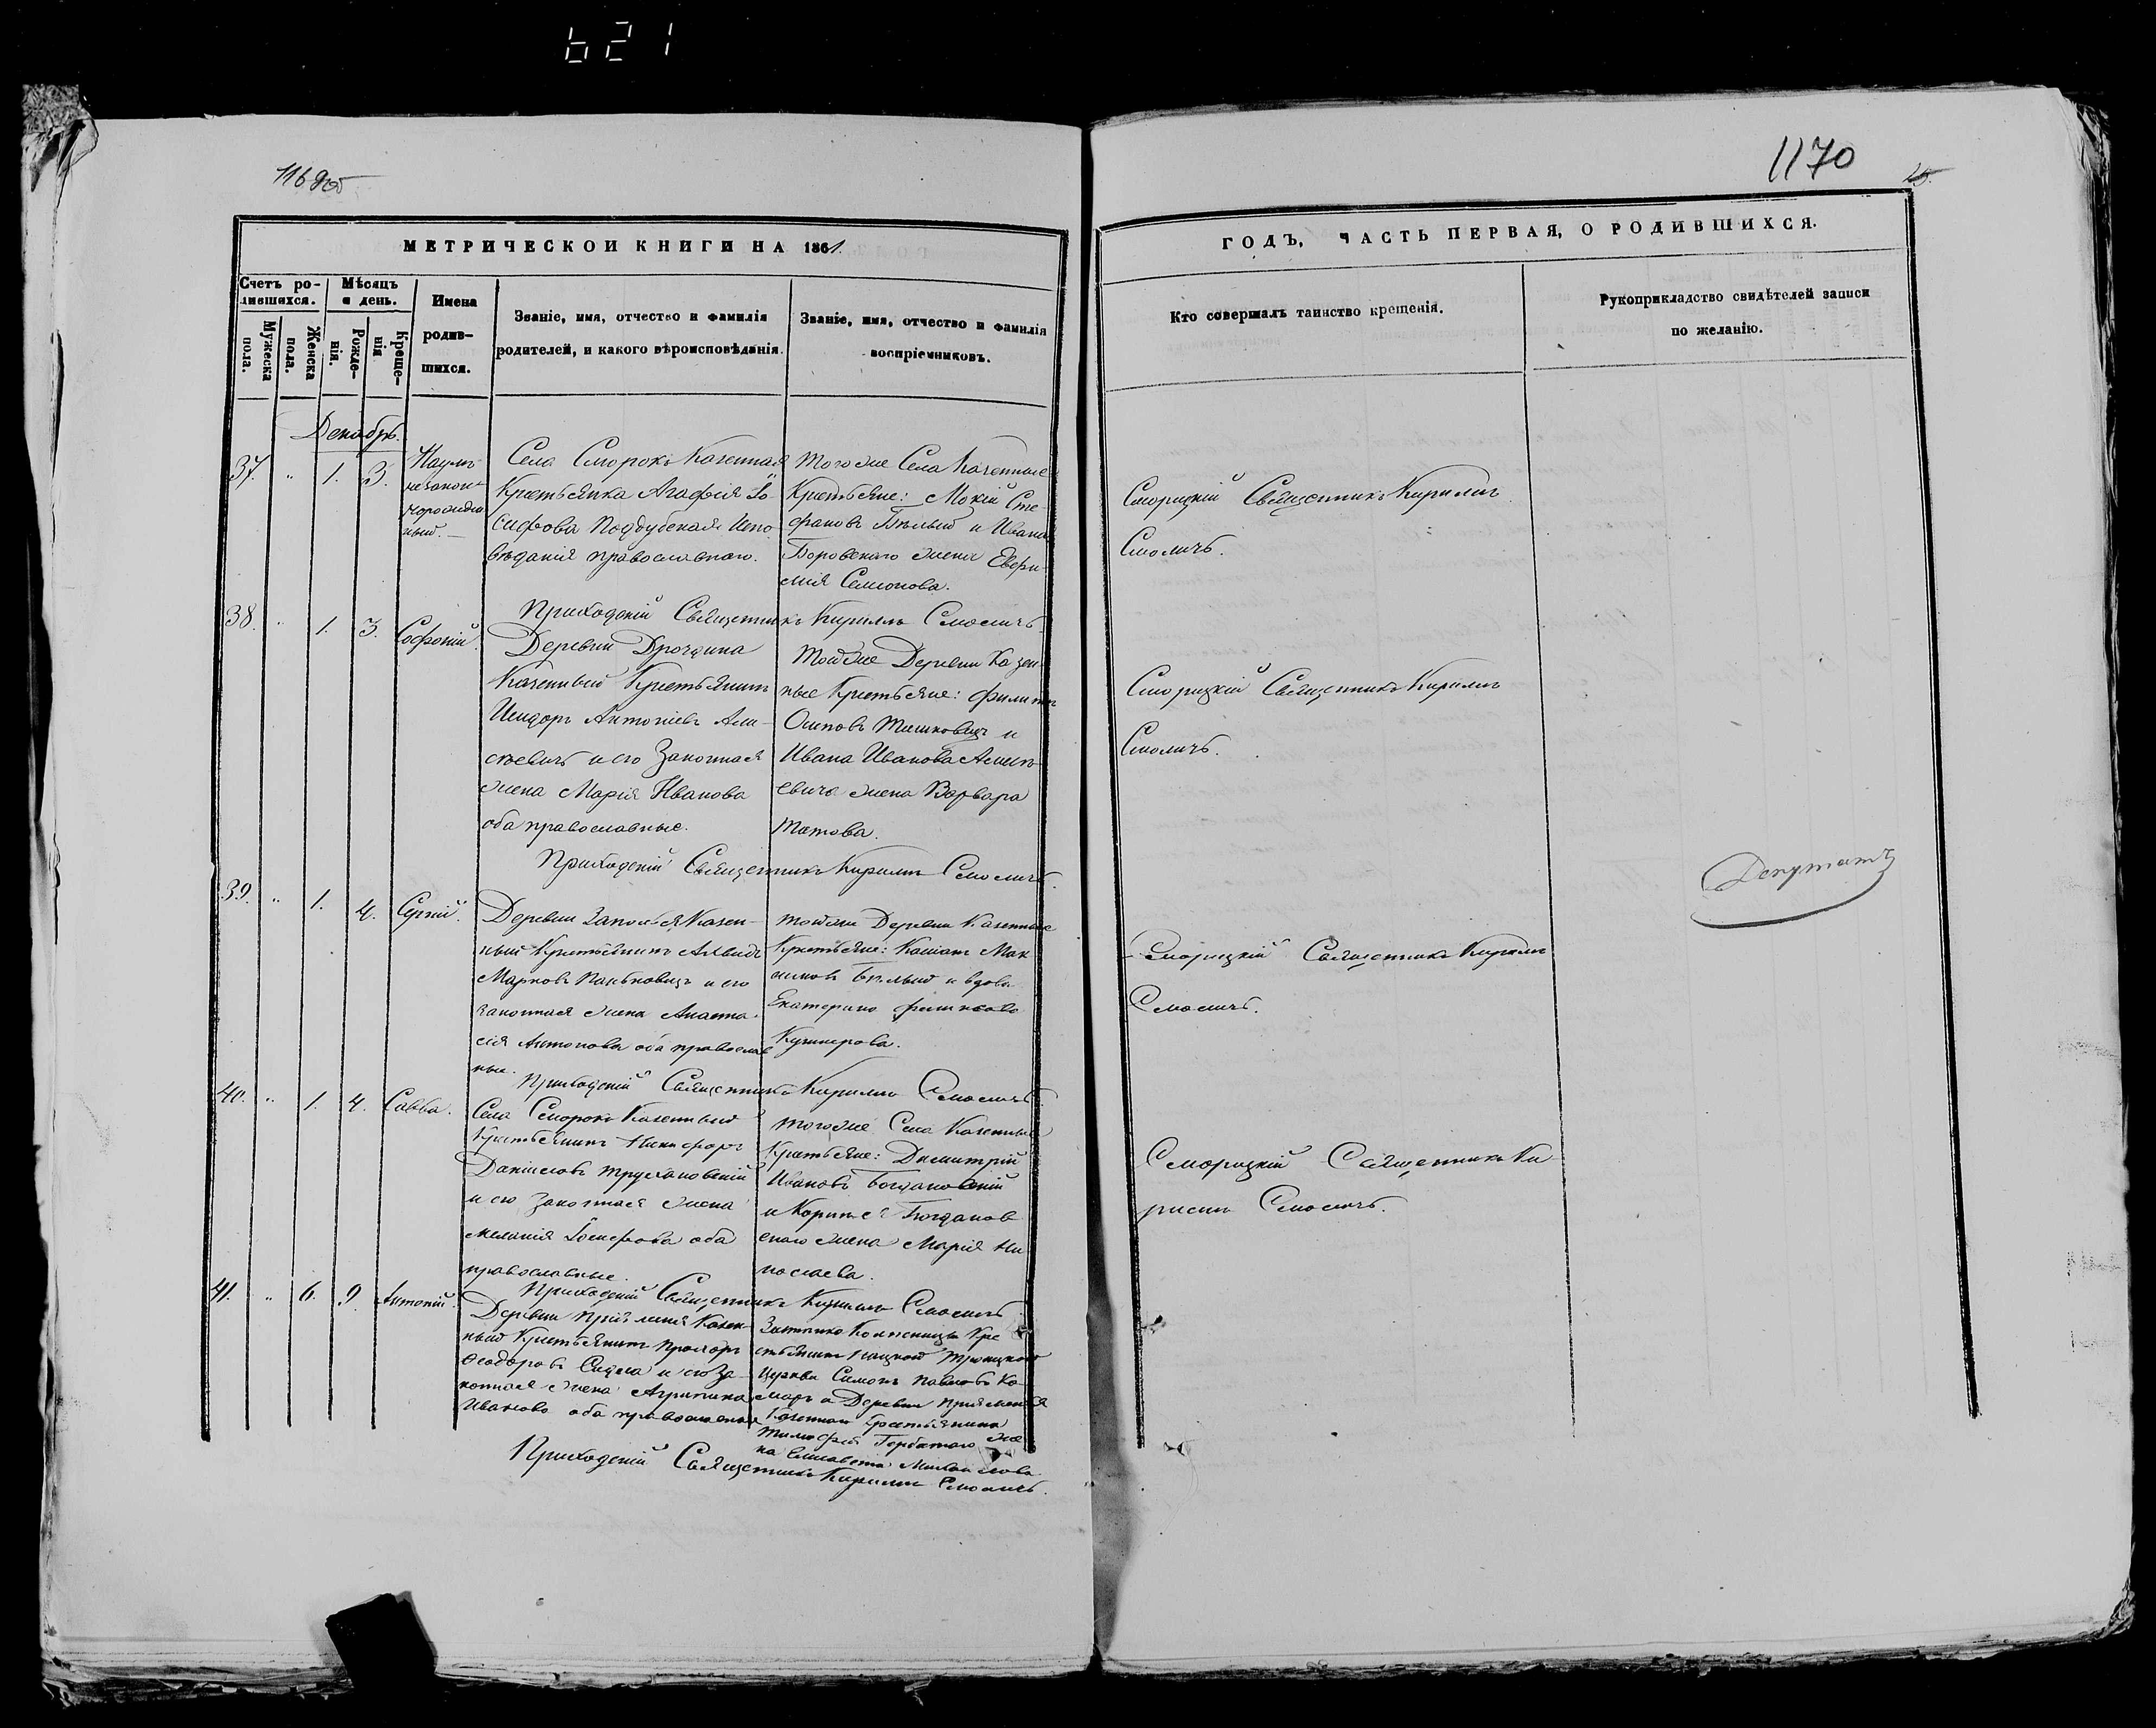 621
1170
МЕТРИЧЕСКОЙ КНИГИ НА 1861.
ГОДЪ, ЧАСТЬ ПЕРВАЯ, О РОДИВШИХСЯ.
Счетъ ро-
дившихся.
Мужеска пола.
Женска пола.
Мѣсяцъ
и день.
Рожде-
нія.
Креще-
нія
Имена
родив-
шихся.
Званіе, имя, отчество и фамилія
родителей, и какого вѣроисповѣданія.
Званіе, имя, отчество и фамилія
воспріемниковъ.
Кто совершалъ таинство крещенія.
Рукоприкладство свидѣтелей записи
по желанію.
Декабрь.
37. " 1. 3.
Наумъ
незакон-
норожден
ный.
Села Сморокъ Казенная
Крестьянка Агафія Іо-
сифова Поддубская Испо
вѣданія православнаго.
Того же Села Казенные
Крестьяне: Мокій Сте
фановъ Бѣлый и Ивана
Боровскаго жена Евфи-
мія Семіонова.
Сморицкій Священникъ Кирилъ
Смоличъ.
Приходскій Священникъ Кириллъ Смоличъ.
38. " 1. 3.
Софроній.
Деревни Дроздина
Казенный Крестьянинъ
Исидоръ Антоніевъ Али-
сѣевичъ и его Законная
жена Марія Иванова
оба православные.
Той же Деревни Казен
ные Крестьяне: Филипъ
Осиповъ Тишковецъ и
Ивана Иванова Алисѣ
евича жена Варвара
Титова.
Сморицкій Священникъ Кирилъ
Смоличъ.
Приходскій Священникъ Кирилъ Смоличъ.
39. " 1. 4.
Сергій.
Деревни Заполья Казен-
ный Крестьянинъ
Марковъ Паньковецъ и его
законная жена Анаста-
сія Антонова оба православ
ные.
Той же Деревни Казенные
Крестьяне: Мак
симовъ Бѣлый и вдова
Екатерина
Кушнерова.
Сморицкій Священникъ Кирилъ
Смоличъ.
Депутатъ
Приходскій Священникъ Кирилъ Смоличъ.
40. " 1. 4.
Савва.
Села Сморокъ Казенный
Крестьянинъ Никифоръ
Даніиловъ Трухановскій
и его Законная жена
Меланія Іосифова оба
православные.
Того же Села Казенные
Крестьяне: Димитрій
Ивановъ Богдановскій
и Корнилія Богданов
скаго жена Марія Ни
колаева.
Сморицкій Священникъ Ки
рилъ Смоличъ.
Приходскій Священникъ Кирилъ Смоличъ.
41. " 6. 9.
Антоній.
Деревни Казен-
ный Крестьянинъ Прохоръ
Феодоровъ Сидла и его За-
конная жена Агрипина
Иванова оба православные
Кре
стьянинъ Троицкой
Церкви Симонъ Павловъ Ко
маръ и Деревни
Казеннаго Крестьянина
Тимофея Горбатаго же
на Елисавета Михаилова
Приходскій Священникъ Кирилъ Смоличъ.